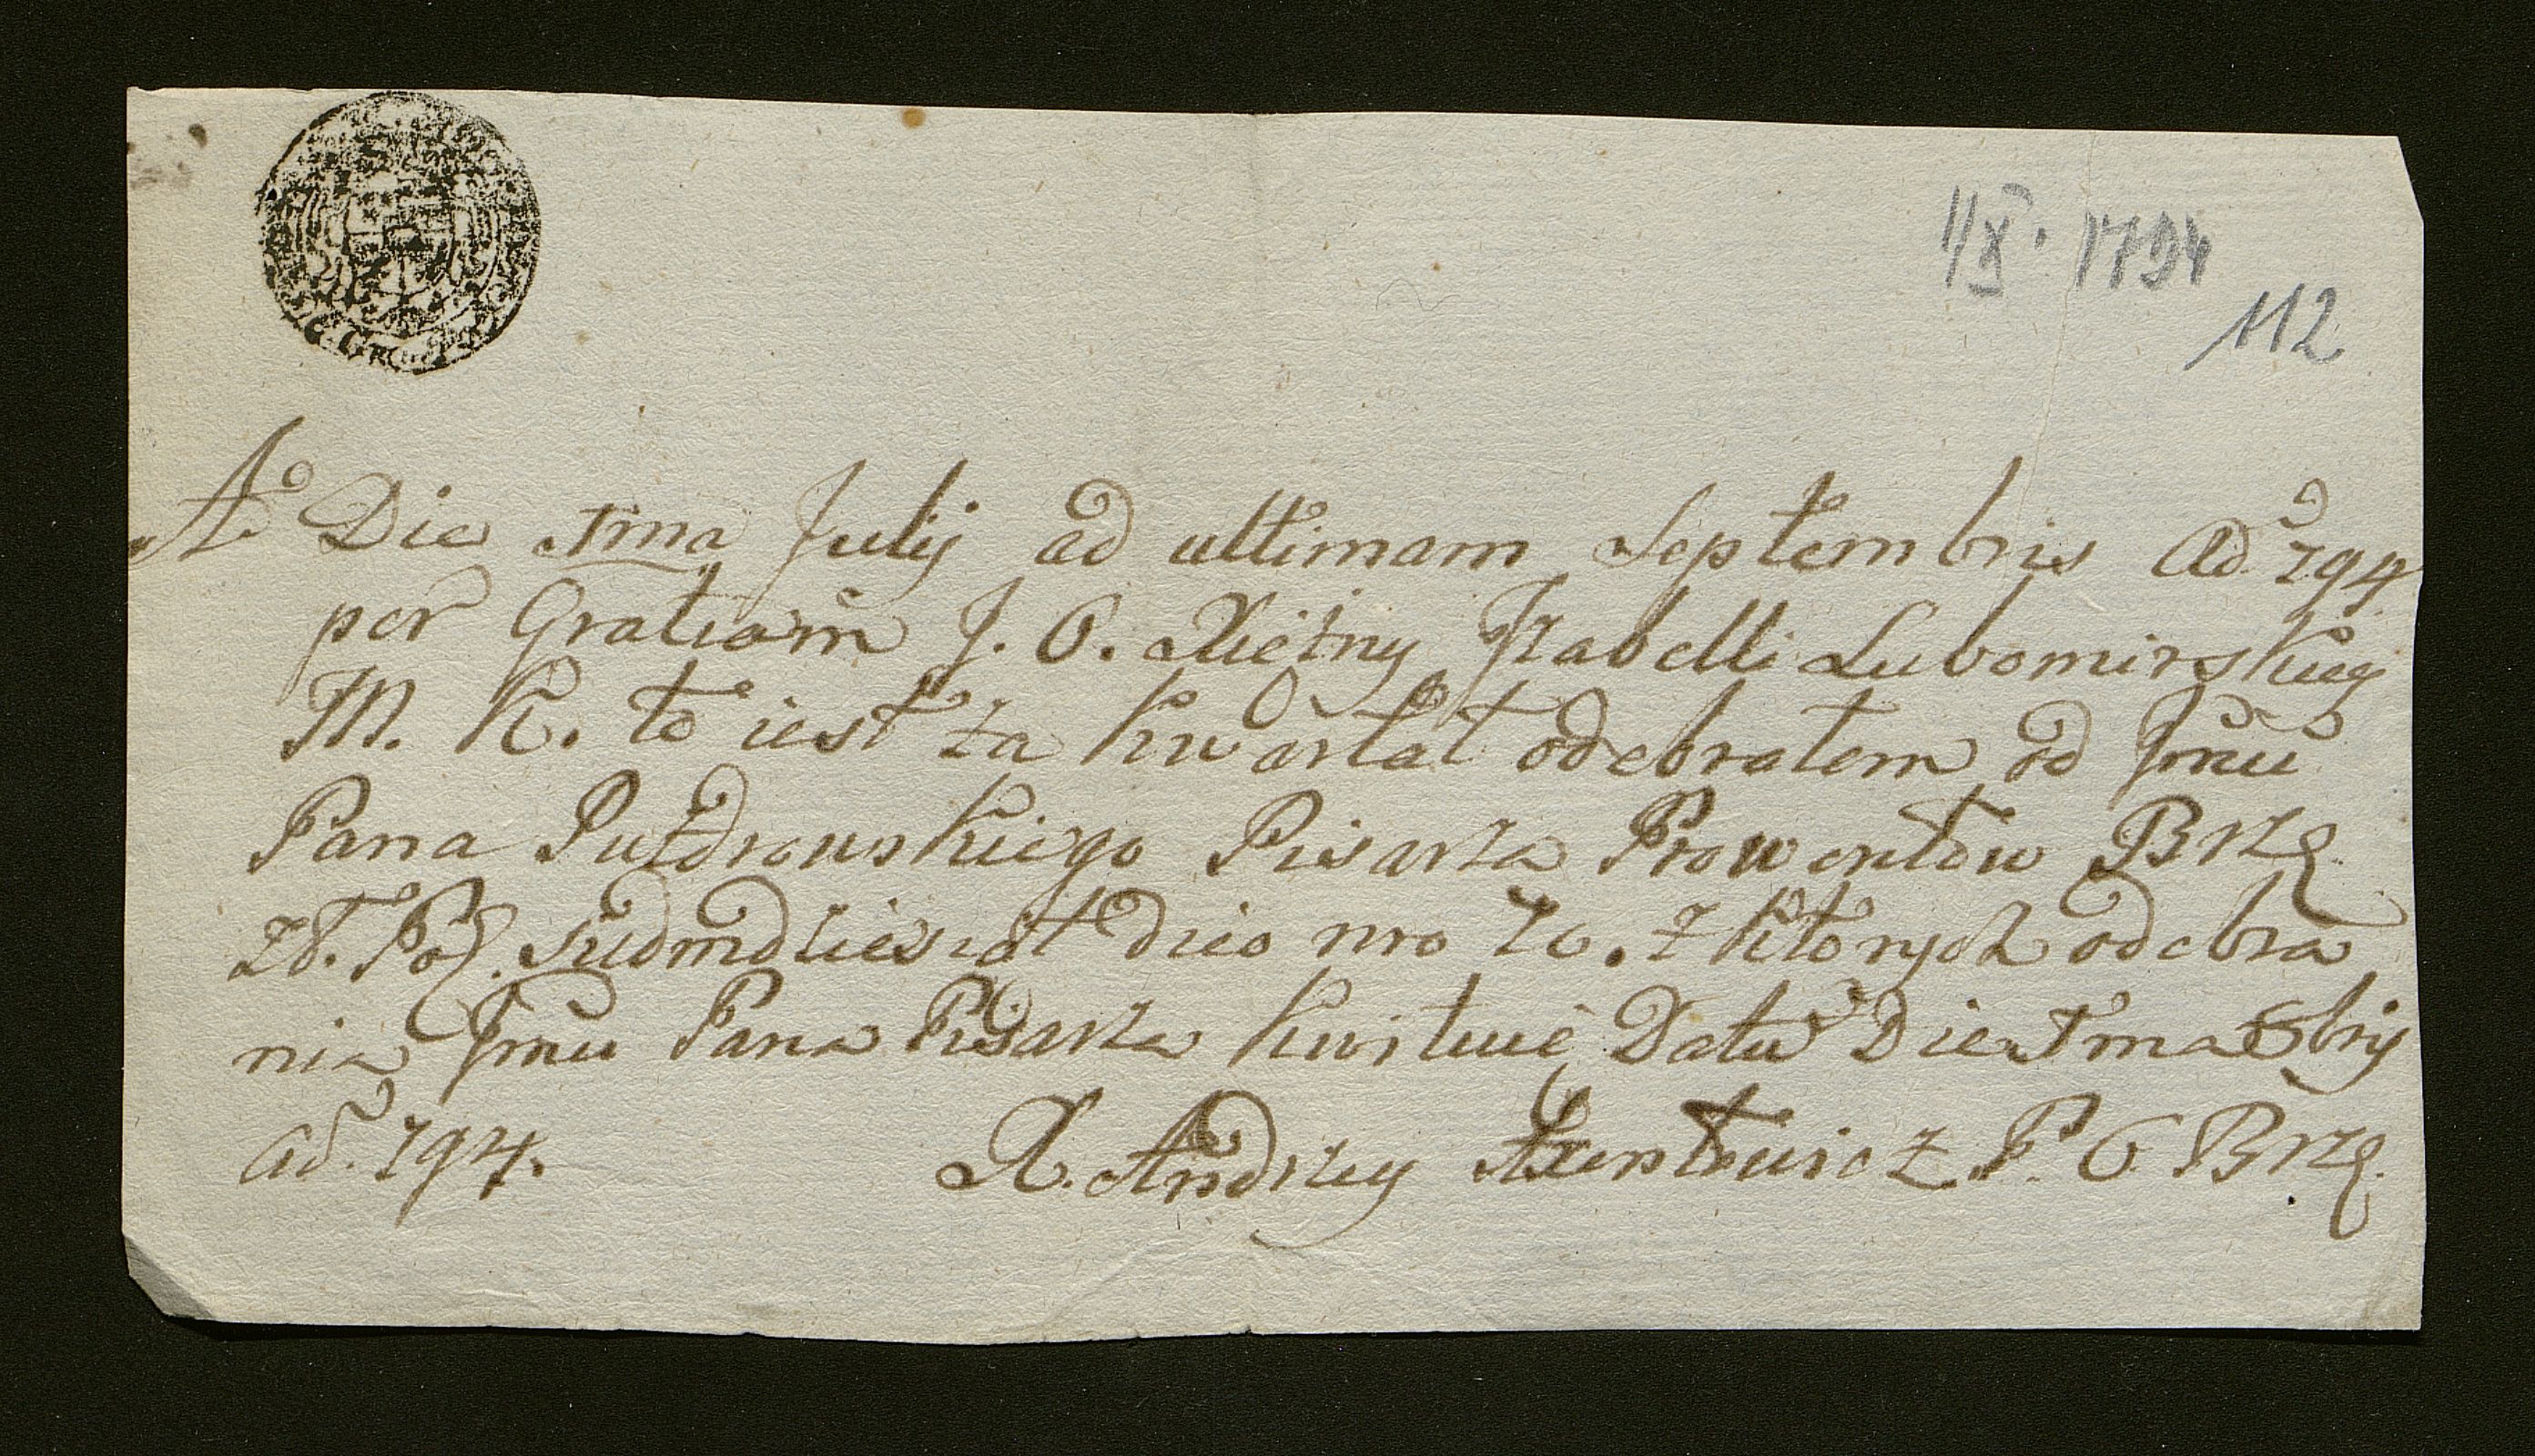 1/X. 1794
112
A Die 1ma Julij ad ultimam Septembris Ao. 794
per Gratiam J. O. Xiężny Jzabelli Lubomirskiey
M. K. to iest za kwartał odebrałem od Jmci
Pana Puzdrowskiego Pisarza Prowentow Brzę.
zł. Pol. siedmdziesiąt dico nro 70. z ktorych odebra
nia Jmci Pana Pisarza kwituię Datu Die 1ma 8bris
Ao. 794.
X. Andrzey Axentowicz P. O Brzę.